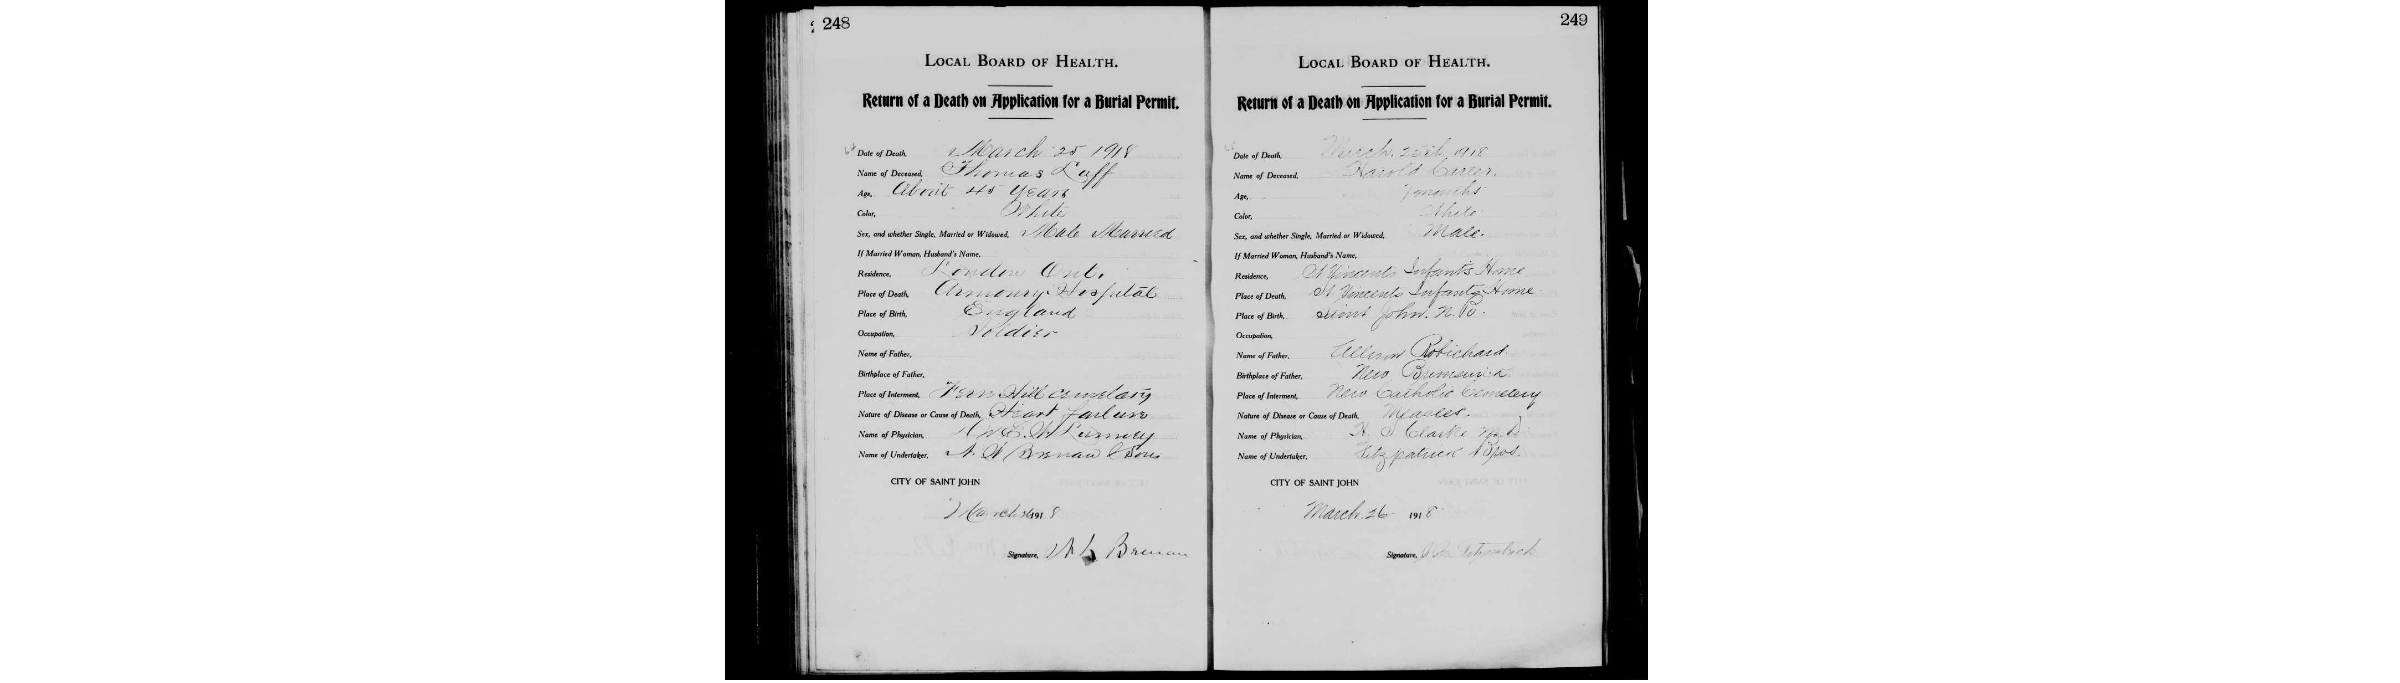 248
LOCAL BOARD OF HEALTH.
Return of a Death on Application for a Burial Permit.
Date of Death, March 25 1918
Name of Deceased, Thomas Luff
Age, About 45 Years
Color, White
Sex, and whether Single, Married or Widowed, Male Married
If Married Woman, Husband's Name,
Residence, London Ont.
Place of Death, Armoury Hospital
Place of Birth, England
Occupation, Soldier
Name of Father,
Birthplace of Father,
Place of Interment, Fern Hill cemetary
Nature of Disease or Cause of Death, Heart Failure
Name of Physician,
Name of Undertaker, Brenan & Sons
CITY OF SAINT JOHN
March 1918
Signature, Brenan
249
LOCAL BOARD OF HEALTH.
Return of a Death on Application for a Burial Permit.
Date of Death, March. 25th 1918
Name of Deceased, Harold
Age, 7 months
Color, White
Sex, and whether Single, Married or Widowed, Male.
If Married Woman, Husband's Name,
Residence, St Vincents Infants Home
Place of Death, St. Vincents Infants Home
Place of Birth, Saint John. N. B.
Occupation,
Name of Father, Robichard
Birthplace of Father, New Brunswick
Place of Interment, New Catholic Cemetery
Nature of Disease or Cause of Death, Measles.
Name of Physician, Clarke M.D
Name of Undertaker, Fitzpatrick Bros.
CITY OF SAINT JOHN
March. 26 1918
Signature, Fitzpatrick